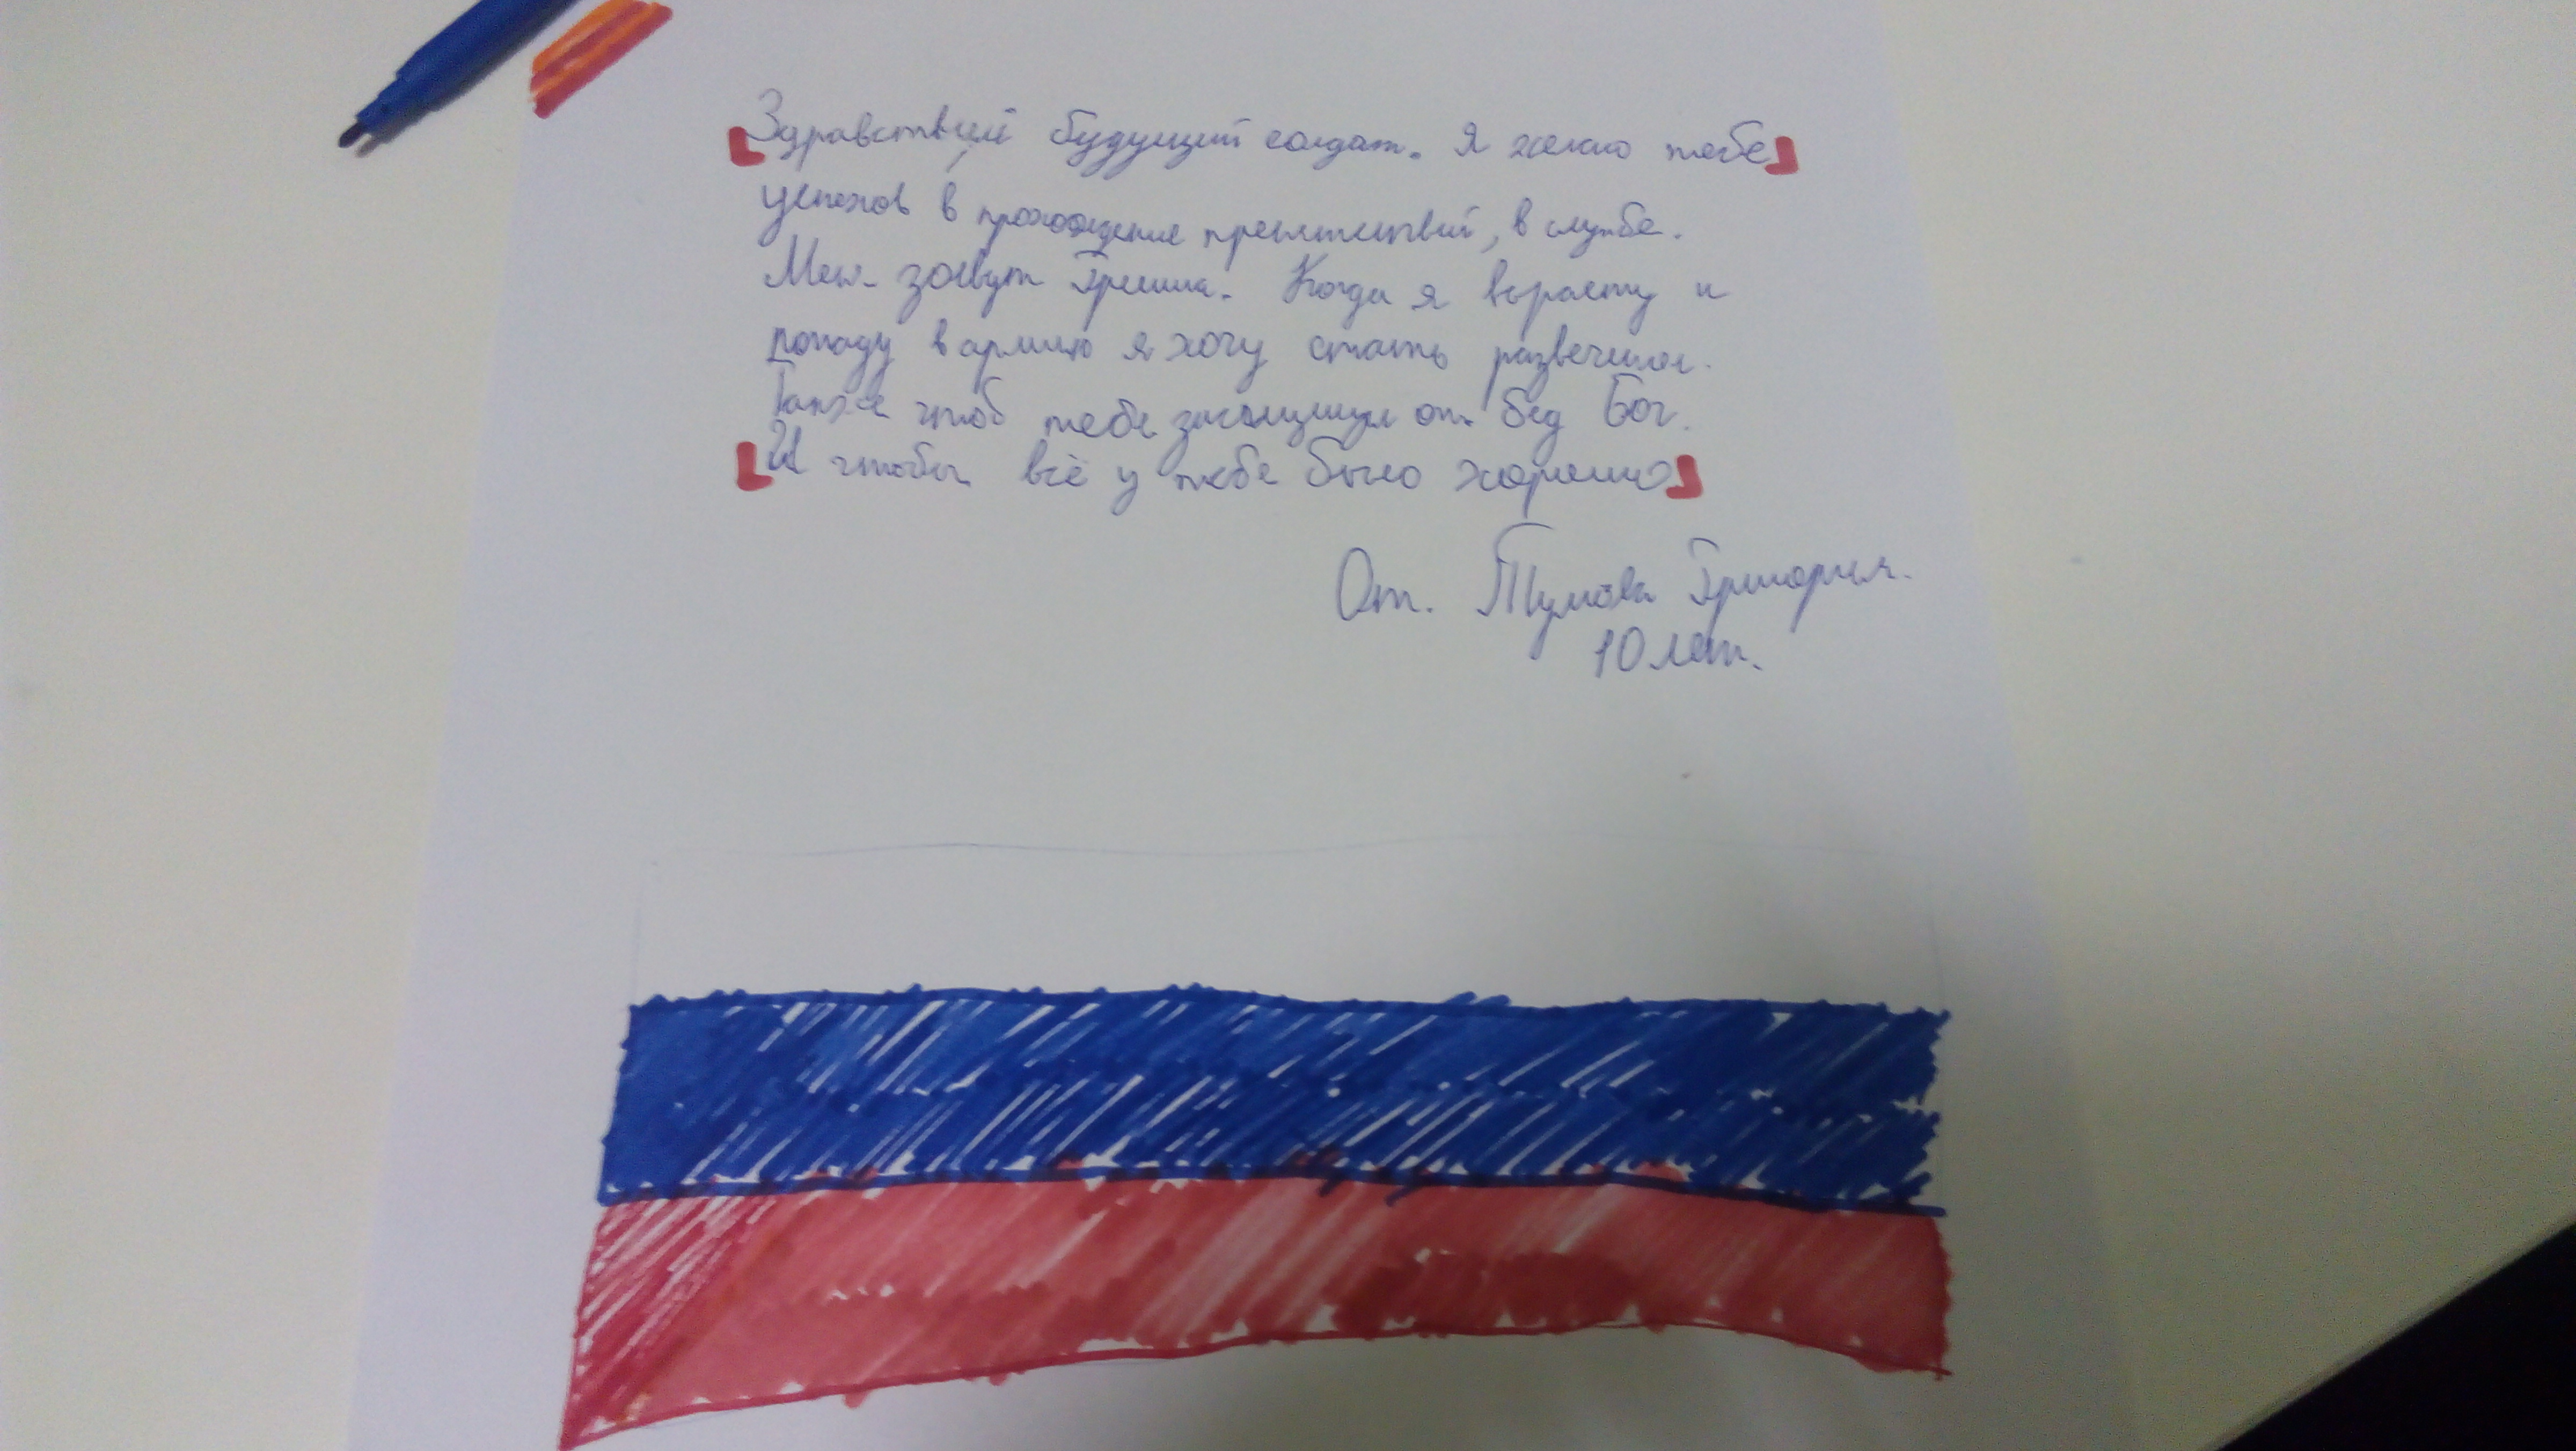 Здравствуй будущий солдат. Я желаю тебе
успехов в прохождение препятствий, в службе.
Меня зовут Гриша. Когда я вырасту и
попаду в армию я хочу стать
Также чтоб тебя от бед Бог.
И чтобы всё у тебя было хорошо
От. Григория.
10 лет.